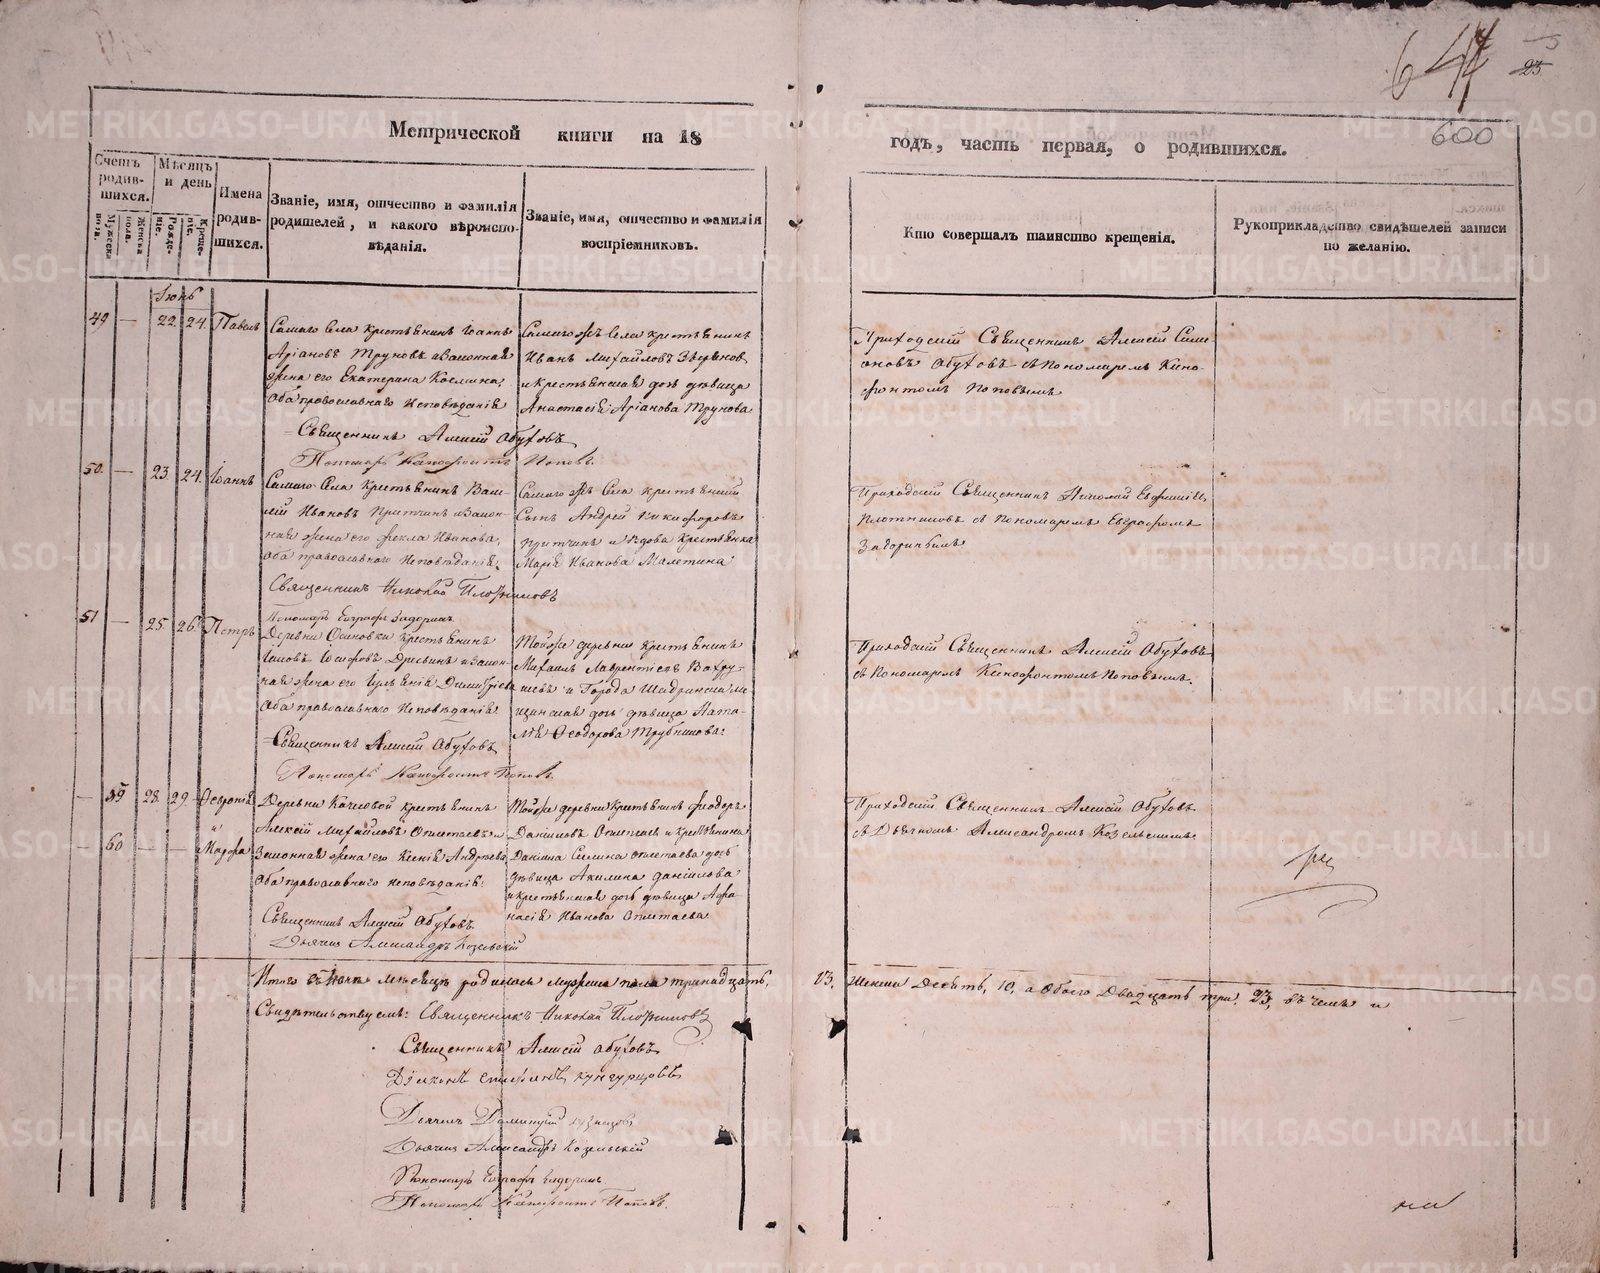 644
23.
600
Метрической книги на 18
годъ, часть первая, о родившихся.
Счетъ родившихся.
Мѣсяцъ и день
Мужеска пола.
Женска пола.
Рожденіе.
Крещеніе.
Имена родившихся.
Званіе, имя, отчество и фамилія родителей, и какого вѣроисповѣданія.
Званіе, имя, отчество и фамилія воспріемниковъ.
Кто совершалъ таинство крещенія.
Рукоприкладство свидѣтелей записи по желанію.
Іюнь
49 — 22. 24. Павелъ
Самаго Села крестьянинъ Іоаннъ
Аріановъ Труновъ и Законная
жена его Екатерина Космина;
Оба православнаго Исповѣданія
Священникъ Алексій Обуховъ
Пономарь Ксенофонтъ Поповъ.
Самаго жъ Села крестьянинъ
Иванъ Михайловъ
и крестьянская дочь дѣвица
Анастасія Аріанова Трунова
Приходскій Священникъ Алексій Симеоновъ Обуховъ съ Пономаремъ Ксенофонтомъ Поповымъ
50. — 23. 24. Іоаннъ
Самаго Села Крестьянинъ Василій Ивановъ Притчинъ и Законная жена его Фекла Иванова,
Оба православнаго Исповѣданія;
Священникъ Николай Плотниковъ
Пономарь Евграфъ
Самаго жъ Села крестьянскій
Сынъ Андрей Никифоровъ
Притчинъ и вдова Крестьянка
Марія Иванова Малетина
Приходскій Священникъ Николай
Плотниковъ съ Пономаремъ Евграфомъ
51 — 25. 26. Петръ
Деревни Осиновки крестьянинъ
Іаковъ Іосифовъ и Законная жена его Гулѣнія Димитріева
Оба православнаго Исповѣданія
Священникъ Алексій Обуховъ
Пономарь Ксенофонтъ Поповъ
Той же деревни крестьянинъ
Михаилъ Лаврентіевъ Вахрушевъ и Города Шадринска мѣщанская дочь дѣвица Наталія Ѳеодорова Трубникова:
Приходскій Священникъ Алексій Обуховъ
съ Пономаремъ Ксенофонтомъ Поповымъ.
— 59 28. 29. Февронія
— 60 — — Марфа
Деревни крестьянинъ
Алексій Михайловъ Оплетаевъ и
Законная жена его Ксенія Андреева
Оба православнаго исповѣданія:
Священникъ Алексій Обуховъ.
Дьячекъ Александръ Козельскій
Той же деревни Крестьянинъ Феодоръ
Даніиловъ Оплетаевъ и крестьянина
Даніила Силина Оплетаева дочь
дѣвица Акилина Даніилова
и крестьянская дочь дѣвица Афанасія Иванова Оплетаева
Приходскій Священникъ Алексій Обуховъ
съ Дьячкомъ Александромъ Козельскимъ
Итого въ Іюнѣ мѣсяцѣ родилось мужеска пола тринадцать, 13, Женска Десять, 10, а Обоего Двадцать три, 23, въ чемъ и
Свидѣтельствуемъ: Священникъ Николай Плотниковъ
Священникъ Алексій Обуховъ
Діаконъ Стефанъ Кунгурцовъ
Дьячекъ
Дьячекъ Александръ Козельскій
Пономарь Евграфъ
Пономарь Ксенофонтъ Поповъ.
METRIKI.GASO-URAL.RU